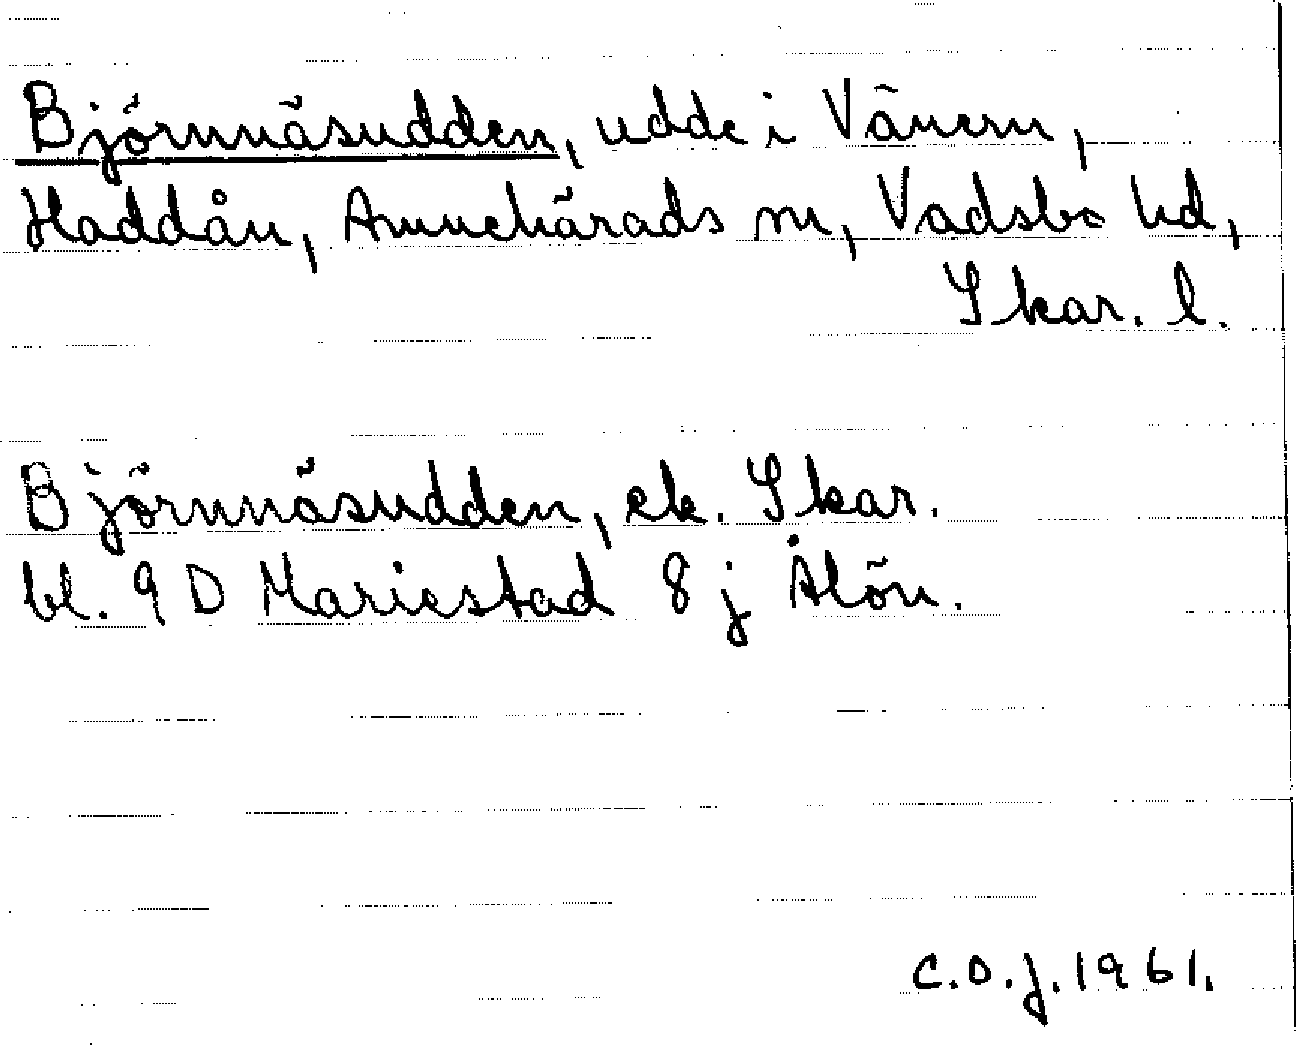 Björnnäsudden, udde i Vänern,
Haddån, Amnehärads sn, Vadsbo hd,
Skar. l.
Björnnäsudden, ek. Skar.
bl. 9 D Mariestad 8 j Ålön.
C.O.J. 1961.